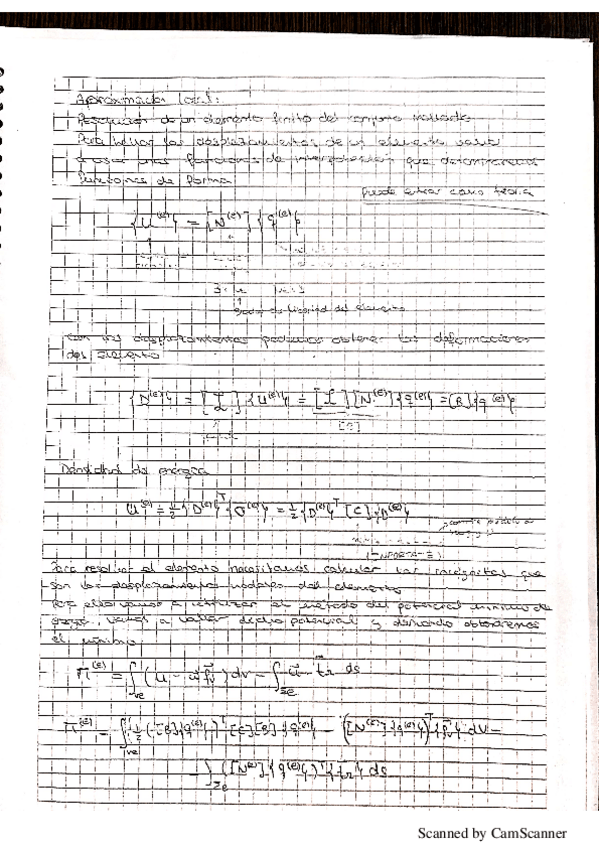 Aproximación local:
Resolución de un elemento finito del conjunto mallado
Para hallar los desplazamientos de un elemento vamos
a usar unas funciones de interpolación que denominaremos
funciones de forma
Puede entrar como teoría
{U^(e)} = [N^(e)] {q^(e)}
grados de libertad del elemento
Con los desplazamientos podemos obtener las deformaciones
del elemento
{D^(e)} = [L] {U^(e)} = [L] [N^(e)] {q^(e)} = [B] {q^(e)}
[B]
Densidad de energía
U^(e) = 1/2 {D^(e)}^T {σ^(e)} = 1/2 {D^(e)}^T [C] {D^(e)}
Para resolver el elemento necesitamos calcular las incógnitas que
son los desplazamientos nodales del elemento
Para ello vamos a utilizar el método del potencial mínimo de
vamos a hallar dicho potencial y derivando obtendremos
el mínimo
π^(e) = ∫_ve (U - u f_v) dv - ∫_se u t_r ds
π^(e) = ∫_ve 1/2 ([B] {q^(e)})^T [C] [B] {q^(e)} - ([N^(e)] {q^(e)})^T {f_v} dv -
- ∫_se ([N^(e)] {q^(e)})^T {t_r} ds
Scanned by CamScanner